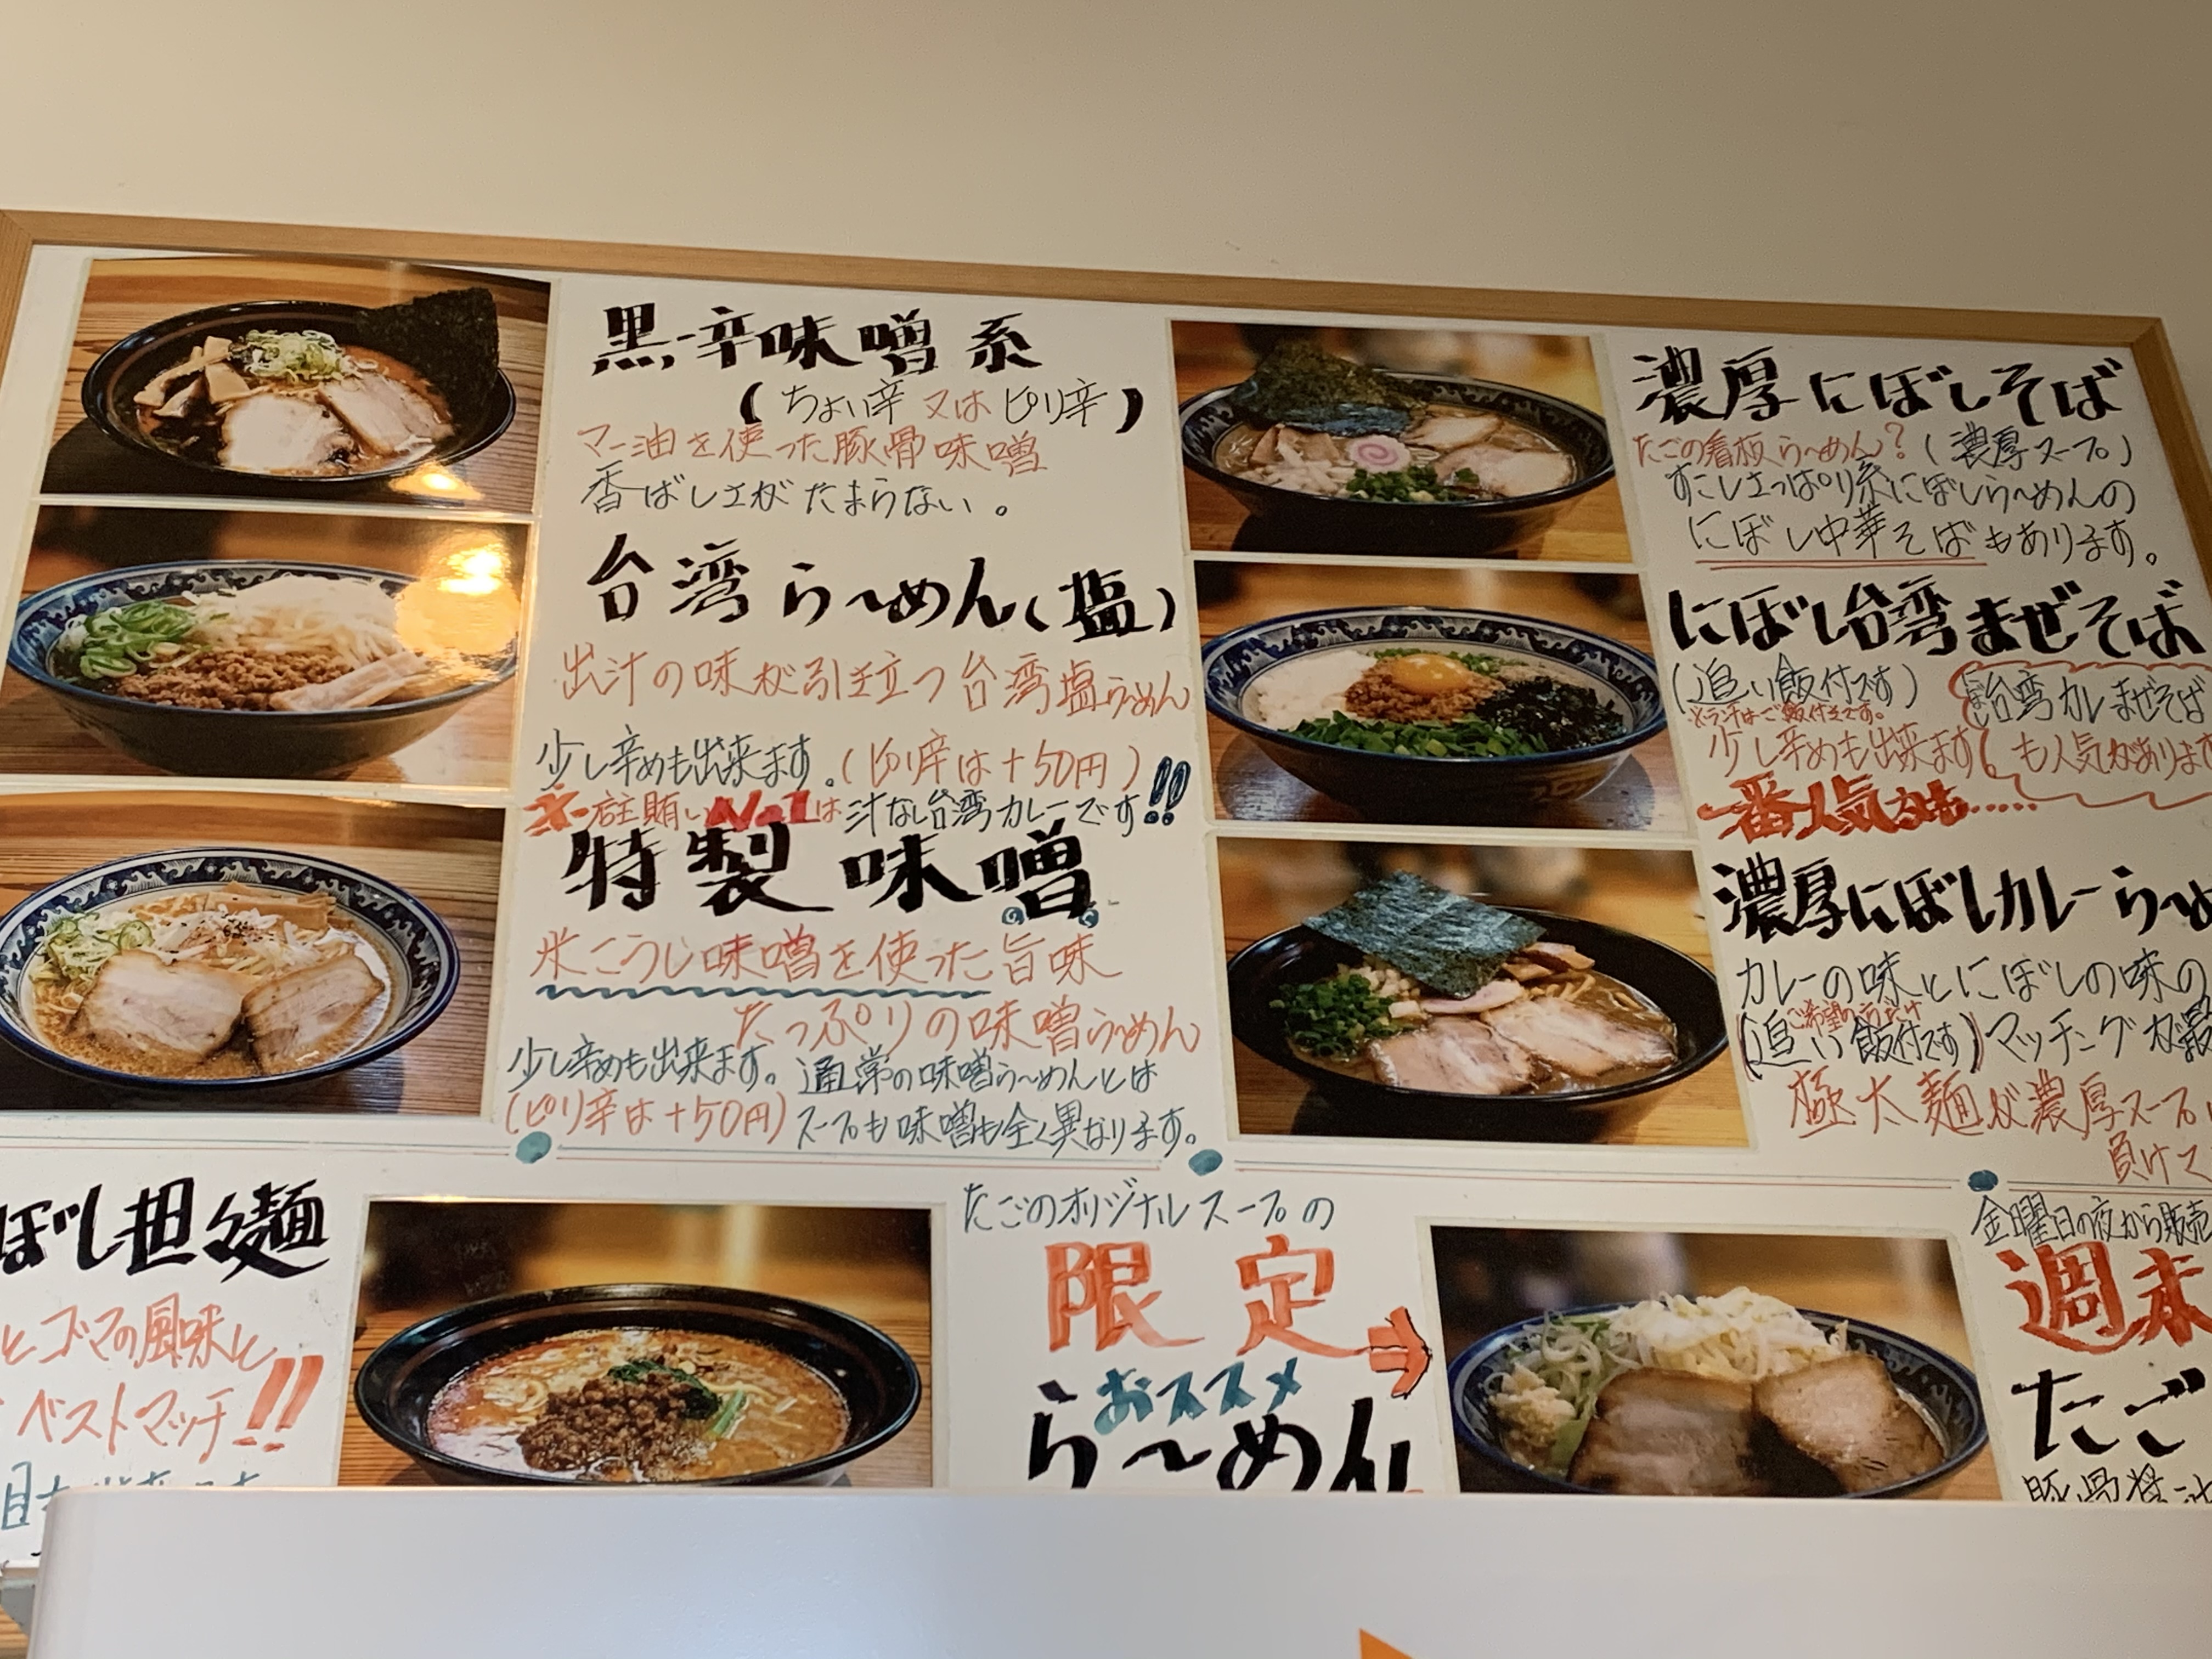 黒辛味噌系
(ちょい辛又はピリ辛)
マー油を使った豚骨味噌
香ばしさがたまらない。
台湾らーめん(塩)
出汁の味が引き立つ台湾塩らーめん
少し辛めも出来ます。(ピリ辛は+50円)
店主賄いNo.1は汁なし台湾カレーです!!
特製味噌
米こうじ味噌を使った旨味
たっぷりの味噌らーめん
少し辛めも出来ます。
(ピリ辛は+50円)
通常の味噌らーめんとは
スープも味噌も全く異なります。
濃厚にぼしそば
たごの看板らーめん?(濃厚スープ)
すこしさっぱり系にぼしらーめんの
にぼし中華そばもあります。
にぼし台湾まぜそば
(追い飯付です)
※ランチはご飯付きです。
少し辛めも出来ます
にぼし台湾カレまぜそば
も人気があります
一番人気かも……
濃厚にぼしカレーらー
カレーの味とにぼしの味の
ご希望の方だけ
(追い飯付です)マッチングが最
極太麺が濃厚スープ
負けて
ぼし担々麺
とゴマの風味と
ベストマッチ!!
たごのオリジナルスープの
限定
おススメ
らーめん
金曜日の夜から販売
週末
たご
豚骨醤油